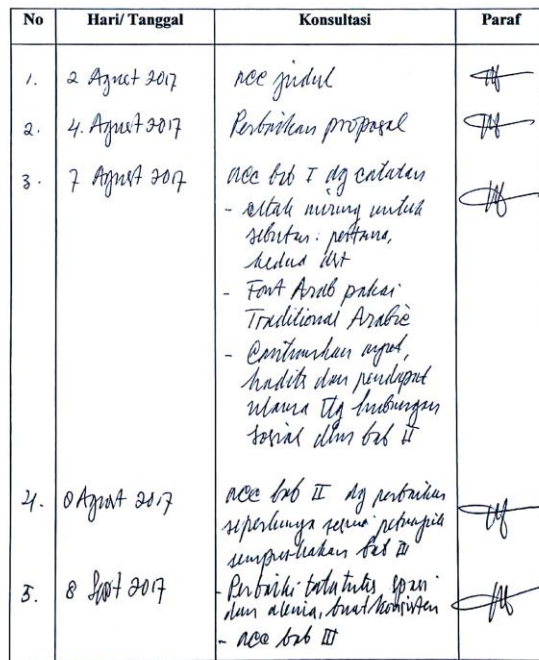 No Hari/ Tanggal Konsultasi Paraf
1. 2 Agust 2017 acc judul
2. 4. Agust 2017 Perbaikan proposal
3. 7 Agust 2017 acc bab I dg catatan
- cetak miring untuk
sebutan: pertama,
kedua dst
- Font Arab pakai
Traditional Arabic
- Cantumkan ayat,
hadits dan pendapat
ulama ttg hubungan
sosial dlm bab II
4. Agust 2017 acc bab II dg perbaikan
seperlunya sesuai petunjuk
bab III
5. 8 Sept 2017 - Perbaiki tata tulis spasi
dan alenia, buat konsisten
- acc bab III